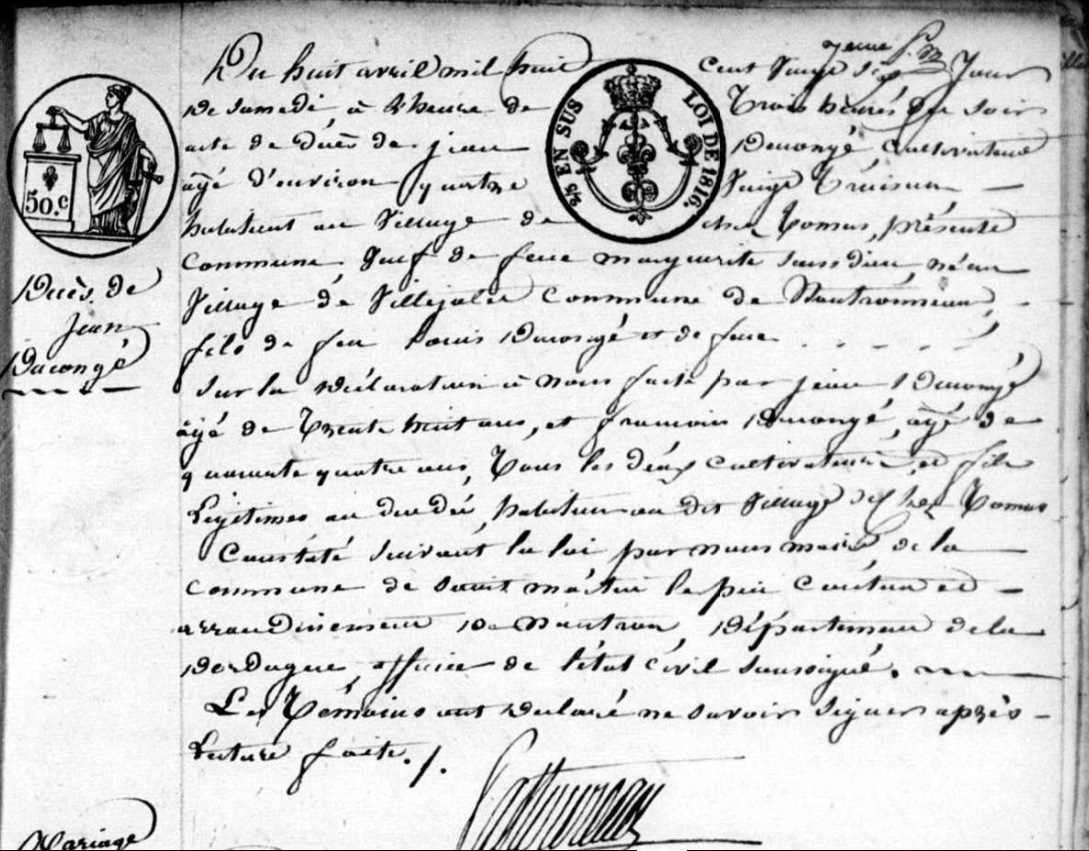 Du huit avril mil huit cent vingt sept jour
de samedi, à l'heure de trois heures du soir
acte de décès de jean Ducongé cultivateur
agé d'environ quatre vingt treize ans
habitant au village de chez Tomas, présente
commune veuf de feue marguerite né au
village de Villejalet commune de
fils de feu Louis Ducongé et de feue
Sur la déclaration à nous faite par jean Ducongé
âgé de trente huit ans, et francois Ducongé, âgé de
quarante quatre ans, tous les deux cultivateurs, et fils
légitimes au décédé, habitant au dit village de chez Tomas
Constaté suivant la loi par nous maire de la
commune de saint martin le pin canton et
arrondissement de nontron, Département de la
Dordogne, officier de l'état civil soussigné.
Les témoins ont déclaré ne savoir signer après
lecture faite./.
50.c
25 EN SUS LOI DE 1816.
Décès de
Jean
Ducongé
Mariage